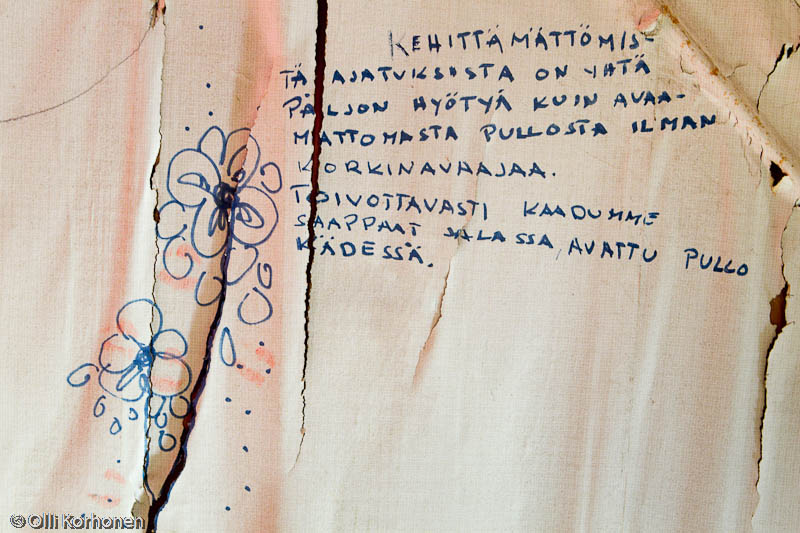 KEHITTÄMÄTTÖMIS-
TÄ AJATUKSISTA ON YHTÄ
PALJON HYÖTYÄ KUIN AVAA-
MATTOMASTA PULLOSTA ILMAN
KORKINAVAAJAA.
TOIVOTTAVASTI KAADUMME
SAAPPAAT JALASSA, AVATTU PULLO
KÄDESSÄ.
© Olli Korhonen